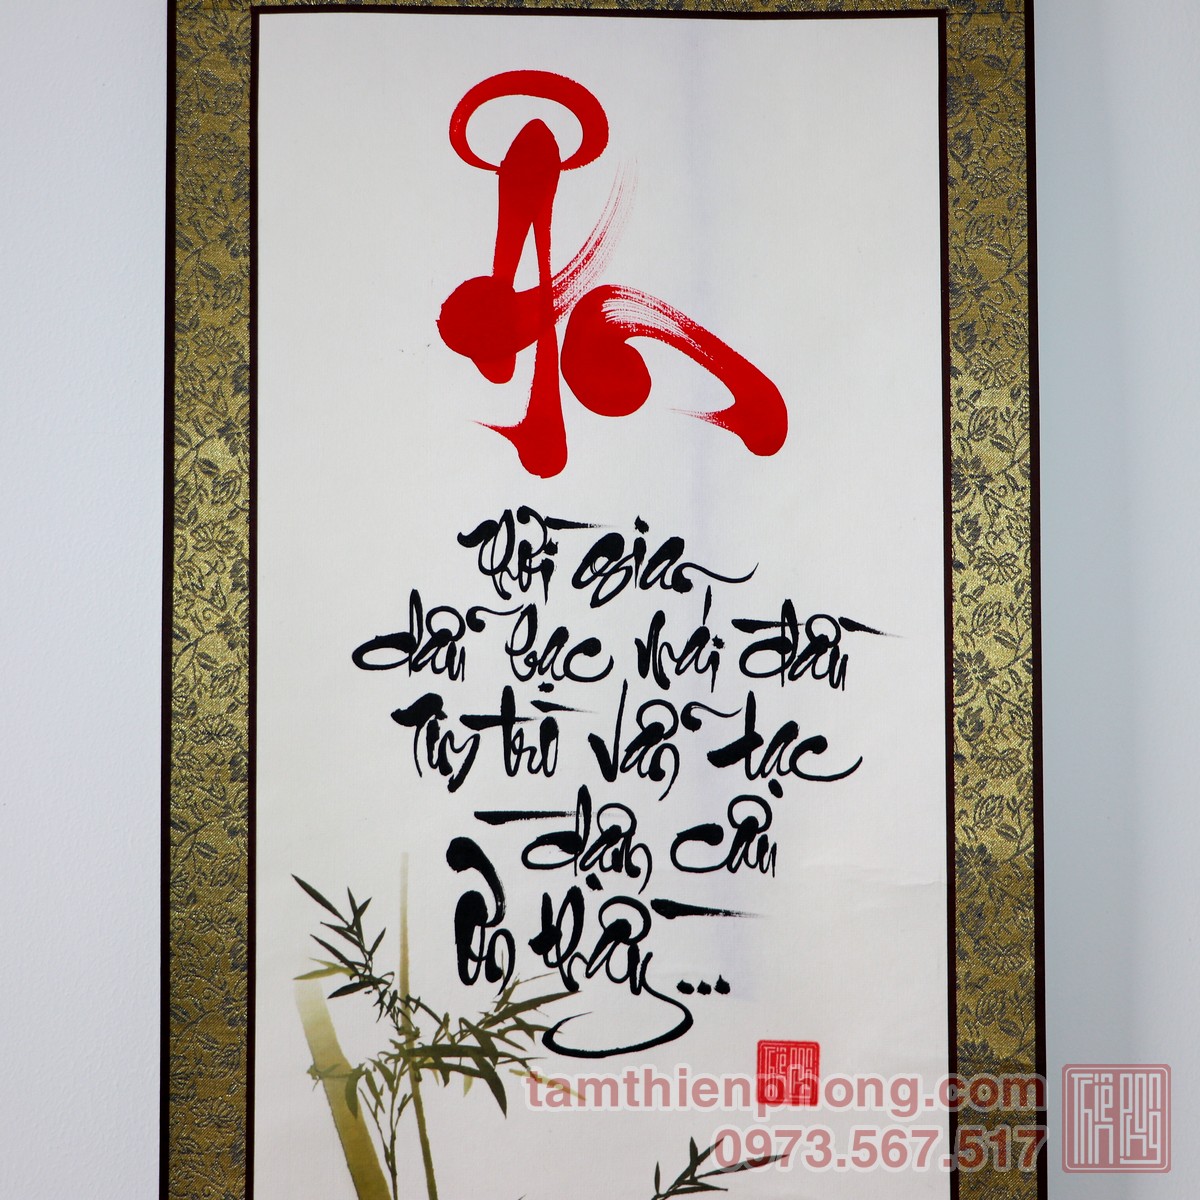 Ân
Thời gian
dẫu bạc mái đầu
Tim trò vẫn tạc
đậm câu
Ơn thầy...
tamthienphong.com
0973.567.517